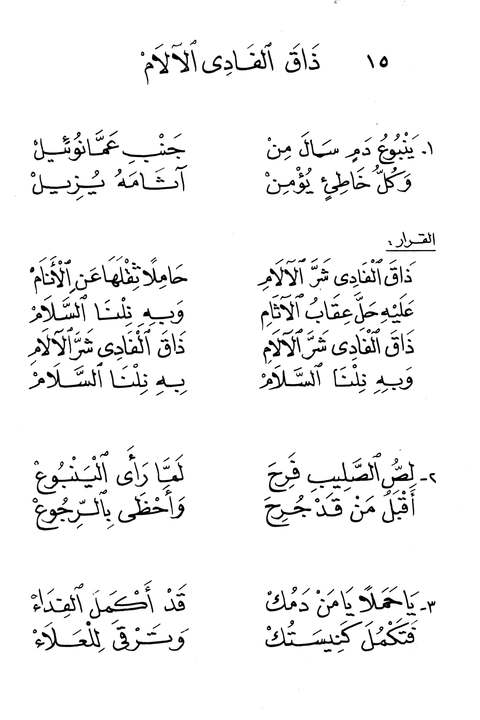 ١٥ ذَاقَ ٱلفَادِى ٱلآلَامْ
١- يَنْبُوعُ دَمٍ سَالَ مِنْ جَنْبِ عَمَّانُوئيلْ
وَكُلُّ خَاطِئٍ يُؤْمِنْ آثَامَهُ يُزِيلْ
القرار:
ذَاقَ ٱلْفَادِى شَرَّ ٱلآلَامِ حَامِلًا ثِقْلَهَا عَنِ ٱلْأَنَامْ
عَلَيْهِ حَلَّ عِقَابُ ٱلآثَامِ وَبِهِ نِلْنَا ٱلسَّلَامْ
ذَاقَ ٱلْفَادِى شَرَّ ٱلآلَامِ ذَاقَ ٱلْفَادِى شَرَّ ٱلآلَامِ
وَبِهِ نِلْنَا ٱلسَّلَامْ بِهِ نِلْنَا ٱلسَّلَامْ
٢- لِصُّ ٱلصَّلِيبِ فَرِحَ لَمَّا رَأَى ٱلْيَنْبُوعْ
أَقْبَلُ مَنْ قَدْ جُرِحَ وَأَحْظَى بِٱلرُّجُوعْ
٣- يَا حَمَلًا يَا مَنْ دَمُكْ قَدْ أَكْمَلَ ٱلفِدَاءْ
فَتَكْمُلَ كَنِيسَتُكْ وَتَرْقَى لِلْعَلَاءْ